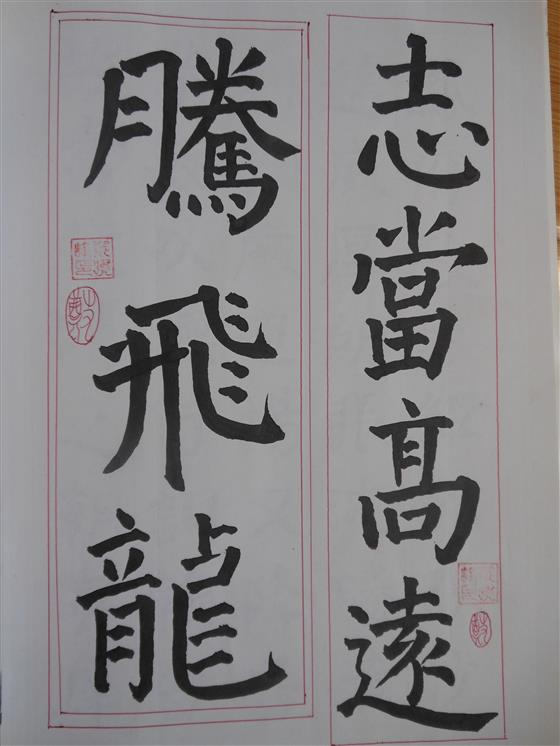 志當高遠
騰飛龍